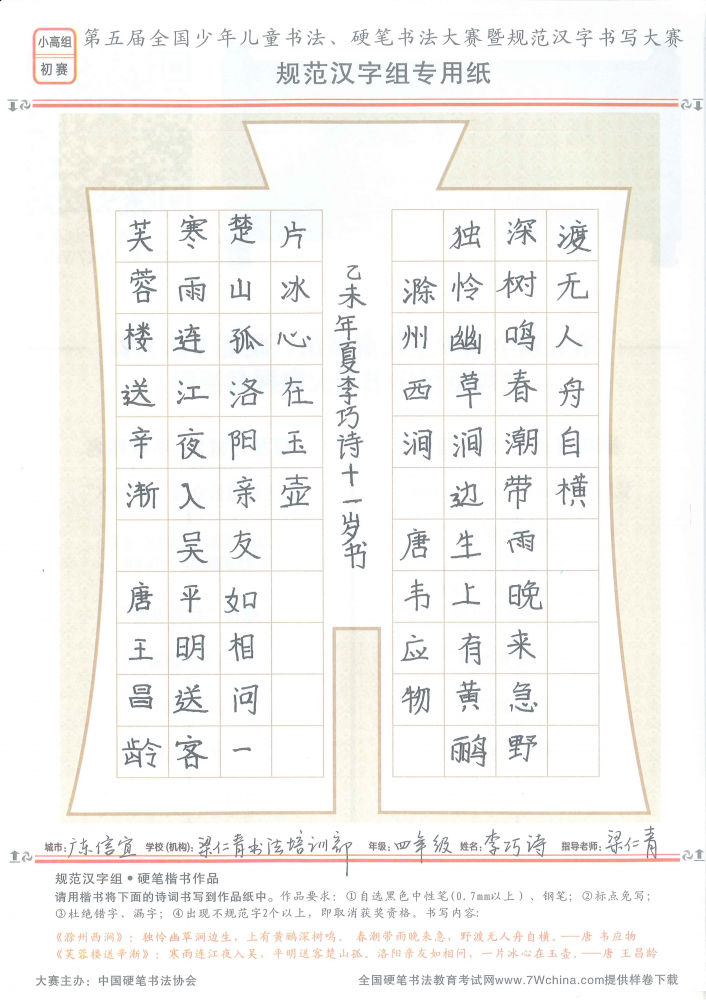 小高组
初赛
第五届全国少年儿童书法、硬笔书法大赛暨规范汉字书写大赛
规范汉字组专用纸
芙蓉楼送辛渐 唐王昌龄
寒雨连江夜入吴平明送客
楚山孤洛阳亲友如相问一
片冰心在玉壶
乙未年夏李巧诗十一岁书
滁州西涧 唐韦应物
独怜幽草涧边生上有黄鹂
深树鸣春潮带雨晚来急野
渡无人舟自横
城市:广东信宜 学校(机构):梁仁青书法培训部 年级:四年级 姓名:李巧诗 指导老师:梁仁青
规范汉字组·硬笔楷书作品
请用楷书将下面的诗词书写到作品纸中。作品要求：①自选黑色中性笔(0.7mm以上)、钢笔；②标点免写；
③杜绝错字、漏字；④出现不规范字2个以上，即取消获奖资格。书写内容：
《滁州西涧》：独怜幽草涧边生，上有黄鹂深树鸣。 春潮带雨晚来急，野渡无人舟自横。——唐 韦应物
《芙蓉楼送辛渐》：寒雨连江夜入吴，平明送客楚山孤。洛阳亲友如相问，一片冰心在玉壶。——唐 王昌龄
大赛主办：中国硬笔书法协会
全国硬笔书法教育考试网www.7Wchina.com提供样卷下载